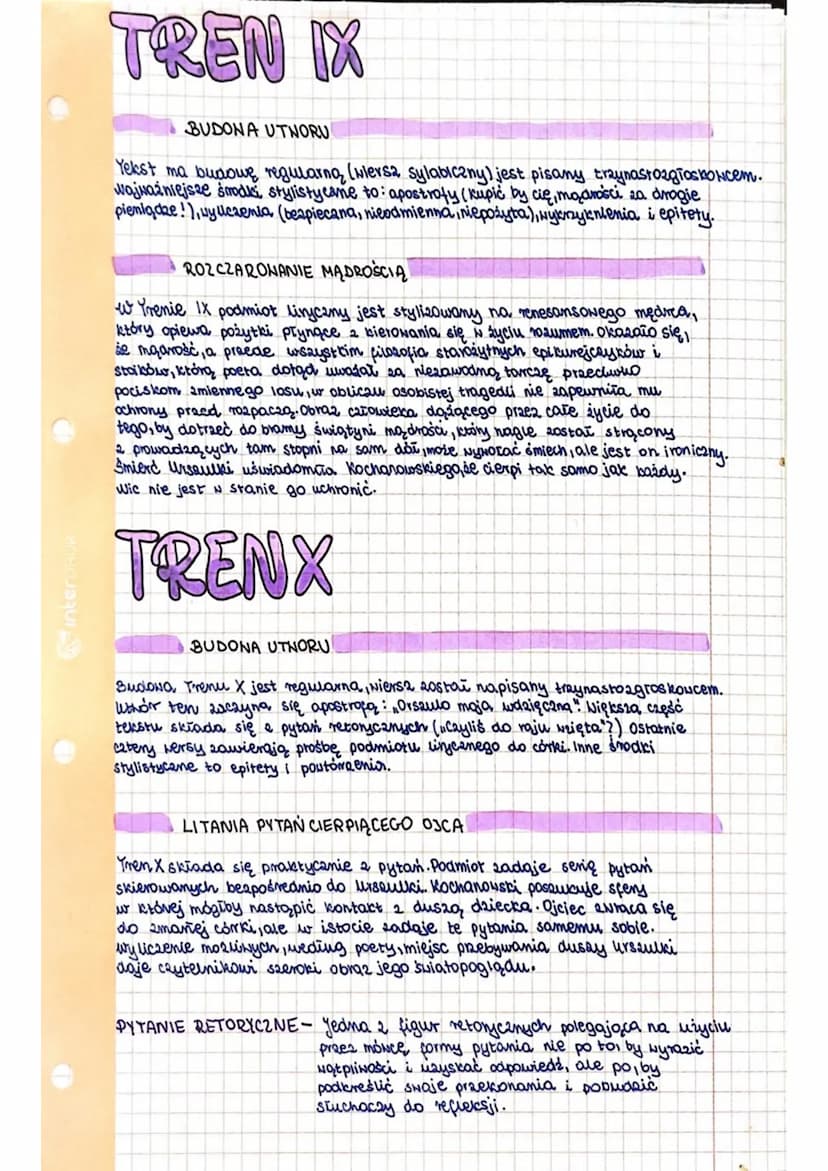 TREN IX
BUDOWA UTWORU
Tekst ma budowę regularną (wiersz sylabiczny) jest pisany trzynastozgłoskowcem.
Najważniejsze środki stylistyczne to: apostrofy (kupić by cię, mądrości za drogie
pieniądze!), wyliczenia (bezpieczna, nieodmienna, niepożyta), wykrzyknienia i epitety.
ROZCZAROWANIE MĄDROŚCIĄ
W Trenie IX podmiot liryczny jest stylizowany na renesansowego mędrca,
który opiewa pożytki płynące z kierowania się w życiu rozumem. Okazało się,
że mądrość, a przede wszystkim filozofia starożytnych epikurejczyków i
stoików, którą poeta dotąd uważał za niezawodną tarczę przeciwko
pociskom zmiennego losu, w obliczu osobistej tragedii nie zapewniła mu
ochrony przed rozpaczą. Obraz człowieka dążącego przez całe życie do
tego, by dotrzeć do bramy świątyni mądrości, który nagle został strącony
z prowadzących tam stopni na sam dół, może wywołać śmiech, ale jest on ironiczny.
Śmierć Urszulki uświadomiła Kochanowskiego, że cierpi tak samo jak każdy.
Nic nie jest w stanie go uchronić.
TREN X
BUDOWA UTWORU
Budowa Trenu X jest regularna, wiersz został napisany trzynastozgłoskowcem.
Utwór ten zaczyna się apostrofą: „Orszulo moja wdzięczna". Większa część
tekstu składa się z pytań retorycznych („Czyliś do raju wzięta"?) Ostatnie
cztery wersy zawierają prośbę podmiotu lirycznego do córki. Inne środki
stylistyczne to epitety i powtórzenia.
LITANIA PYTAŃ CIERPIĄCEGO OJCA
Tren X składa się praktycznie z pytań. Podmiot zadaje serię pytań
skierowanych bezpośrednio do Urszulki. Kochanowski poszukuje sfery
w której mógłby nastąpić kontakt z duszą dziecka. Ojciec zwraca się
do zmarłej córki, ale w istocie zadaje te pytania samemu sobie.
Wyliczenie możliwych, według poety, miejsc przebywania duszy Urszulki
daje czytelnikowi szeroki obraz jego światopoglądu.
PYTANIE RETORYCZNE - Jedna z figur retorycznych polegająca na użyciu
przez mówcę formy pytania nie po to, by wyrazić
wątpliwości i uzyskać odpowiedź, ale po, by
podkreślić swoje przekonania i pobudzić
słuchaczy do refleksji.
interDRUK